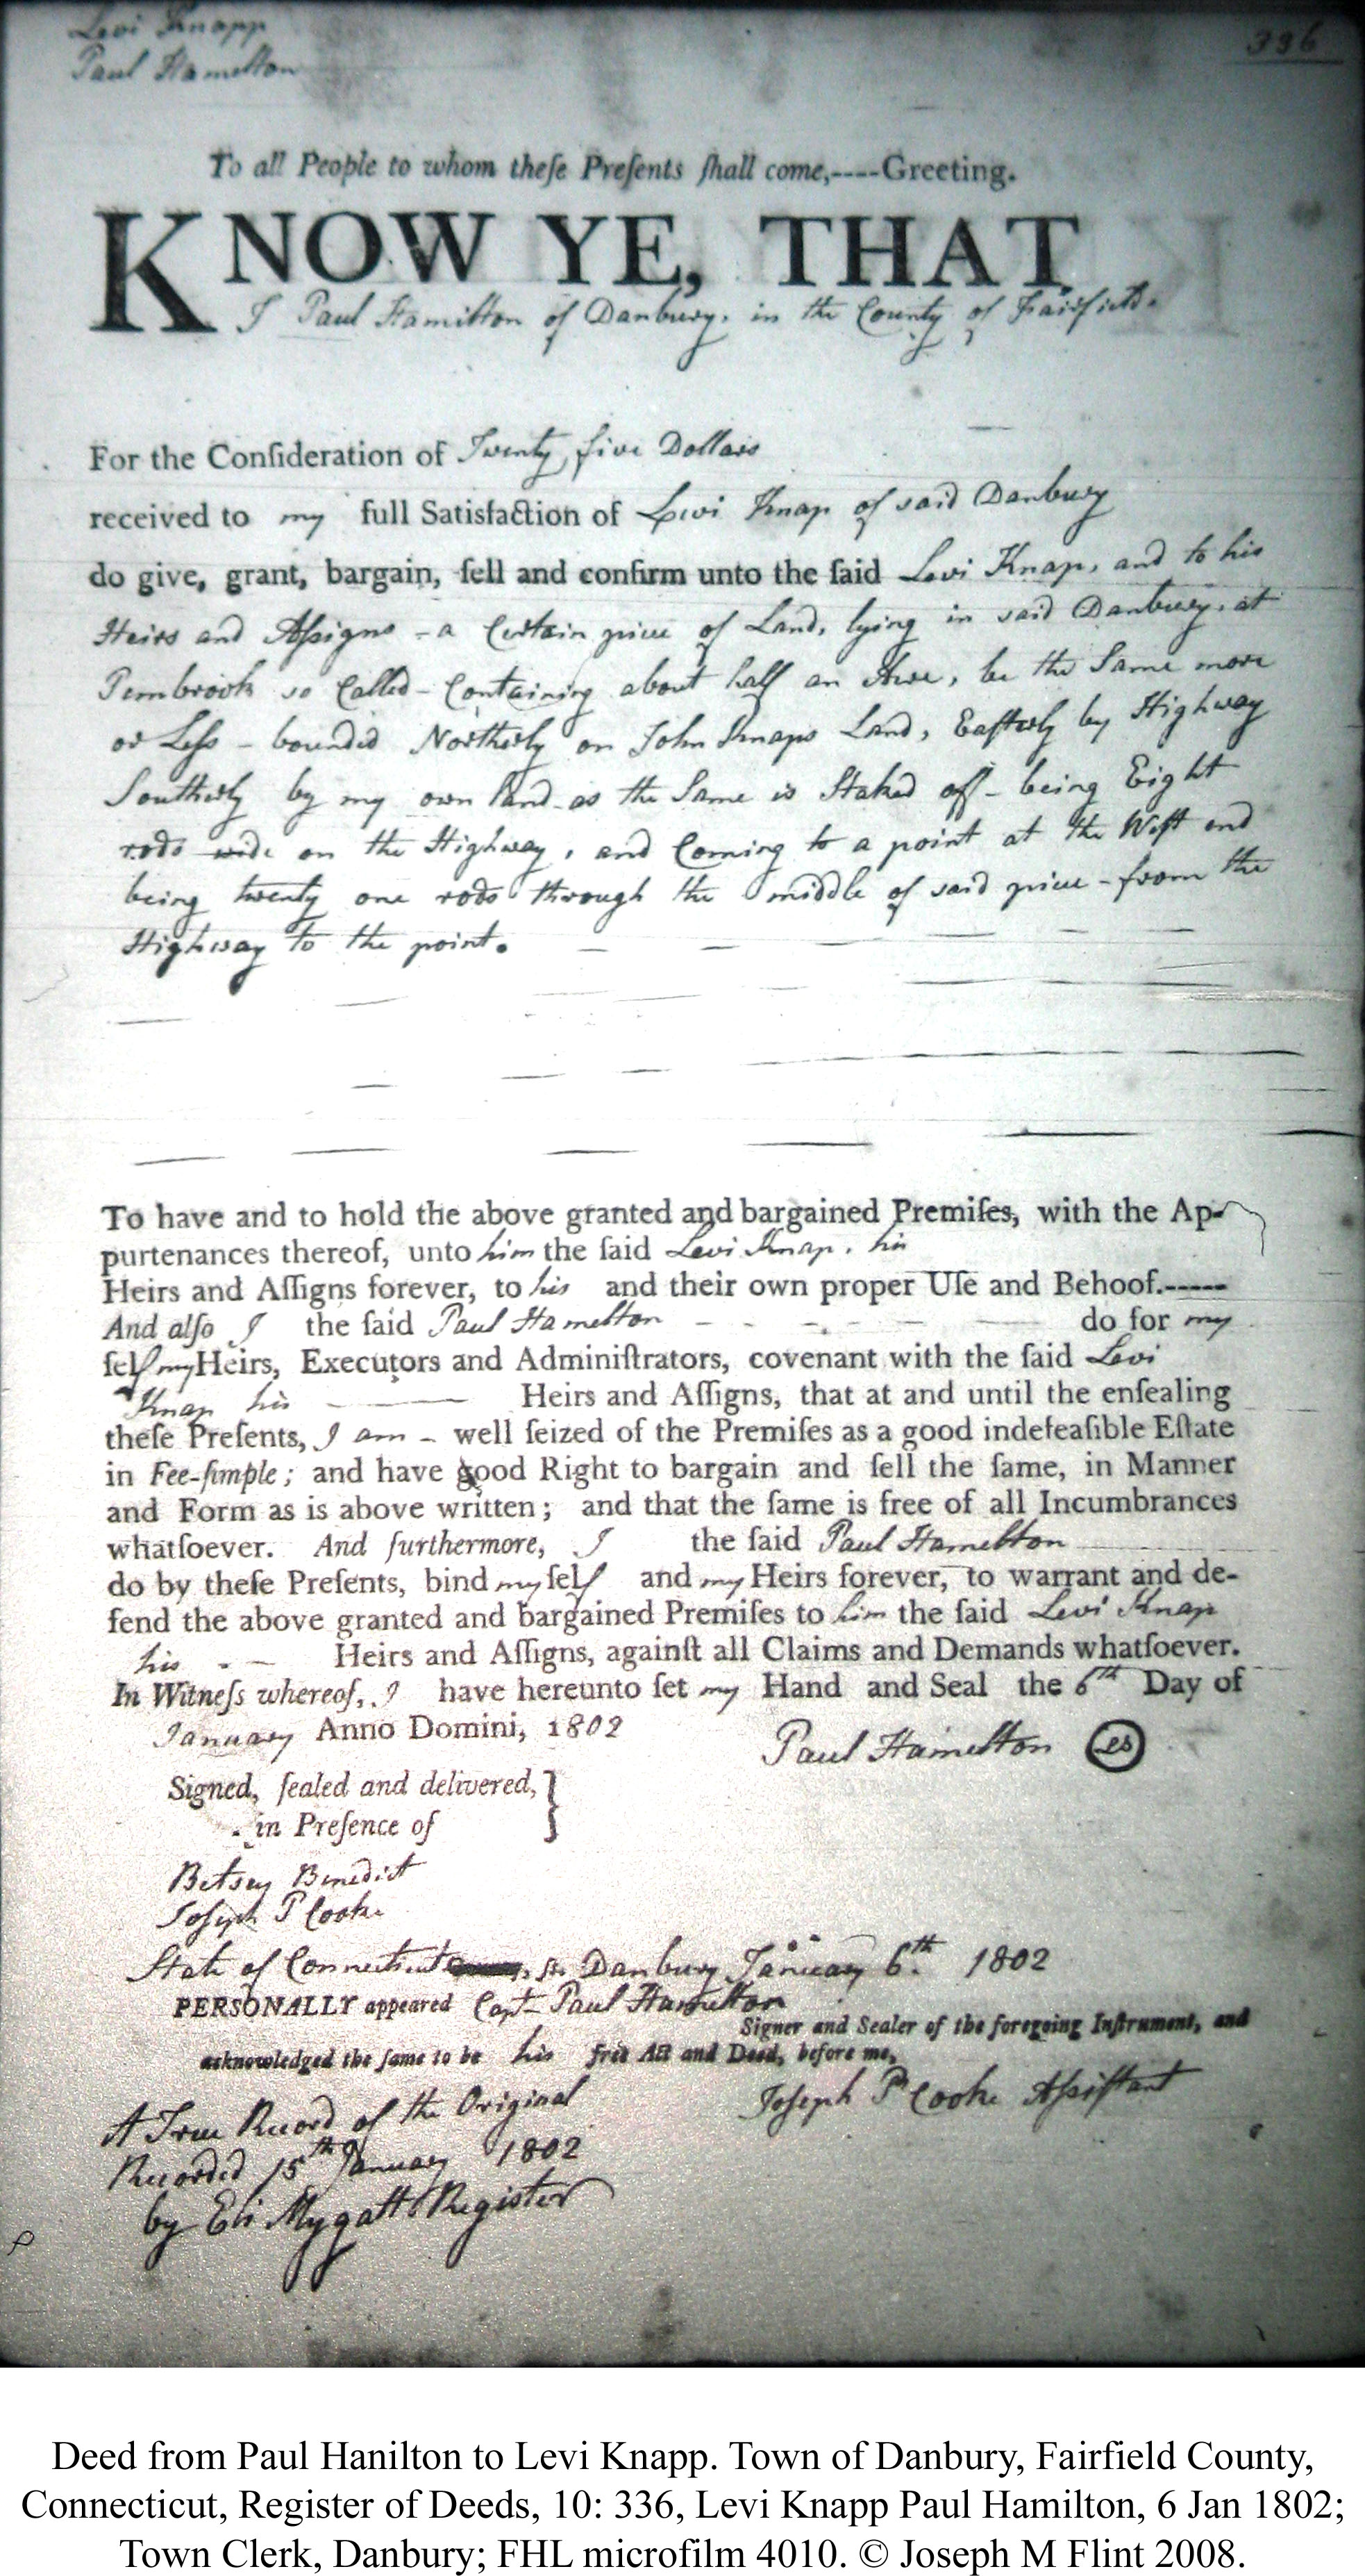 Levi Knapp
Paul Hamelton
336
To all People to whom theſe Preſents ſhall come,----Greeting.
KNOW YE, THAT
I Paul Hamilton of Danbury, in the County of Fairfield.
For the Conſideration of Twenty five Dollars
received to my full Satisfaction of Levi Knap of said Danbury
do give, grant, bargain, ſell and confirm unto the ſaid Levi Knap, and to his
Heirs and Aſsigns - a Certain piece of Land, lying in said Danbury, at
Pembrook so Called - Containing about half an Acre, be the Same more
or Leſs - bounded Northerly on John Knaps Land, Eaſterly by Highway
Southerly by my own land as the Same is Staked off - being Eight
rods wide on the Highway, and Coming to a point at the Weſt end
being twenty one rods through the middle of said piece - from the
Highway to the point.
To have and to hold the above granted and bargained Premiſes, with the Ap-
purtenances thereof, unto him the ſaid Levi Knap, his
Heirs and Aſſigns forever, to his and their own proper Uſe and Behoof.-----
And alſo I the ſaid Paul Hamelton do for my
ſelf my Heirs, Executors and Adminiſtrators, covenant with the ſaid Levi
Knap his Heirs and Aſſigns, that at and until the enſealing
theſe Preſents, I am - well ſeized of the Premiſes as a good indefeaſible Eſtate
in Fee-ſimple; and have good Right to bargain and ſell the ſame, in Manner
and Form as is above written; and that the ſame is free of all Incumbrances
whatſoever. And furthermore, I the ſaid Paul Hamelton
do by theſe Preſents, bind my ſelf and my Heirs forever, to warrant and de-
fend the above granted and bargained Premiſes to him the ſaid Levi Knap
his - - Heirs and Aſſigns, againſt all Claims and Demands whatſoever.
In Witneſs whereof, I have hereunto ſet my Hand and Seal the 6th Day of
January Anno Domini, 1802
Paul Hamelton LS
Signed, ſealed and delivered,}
in Preſence of
Betsey Benedict
Joſeph P Cooke
State of Connecticut, ss. Danbury January 6th. 1802
PERSONALLY appeared Capt- Paul Hamelton
Signer and Sealer of the foregoing Inſtrument, and
acknowledged the ſame to be his free Act and Deed, before me,
Joſeph P Cooke Aſsiſtant
A True Record of the Original
Recorded 15th January 1802
by Eli Mygatt Register
Deed from Paul Hanilton to Levi Knapp. Town of Danbury, Fairfield County,
Connecticut, Register of Deeds, 10: 336, Levi Knapp Paul Hamilton, 6 Jan 1802;
Town Clerk, Danbury; FHL microfilm 4010. © Joseph M Flint 2008.